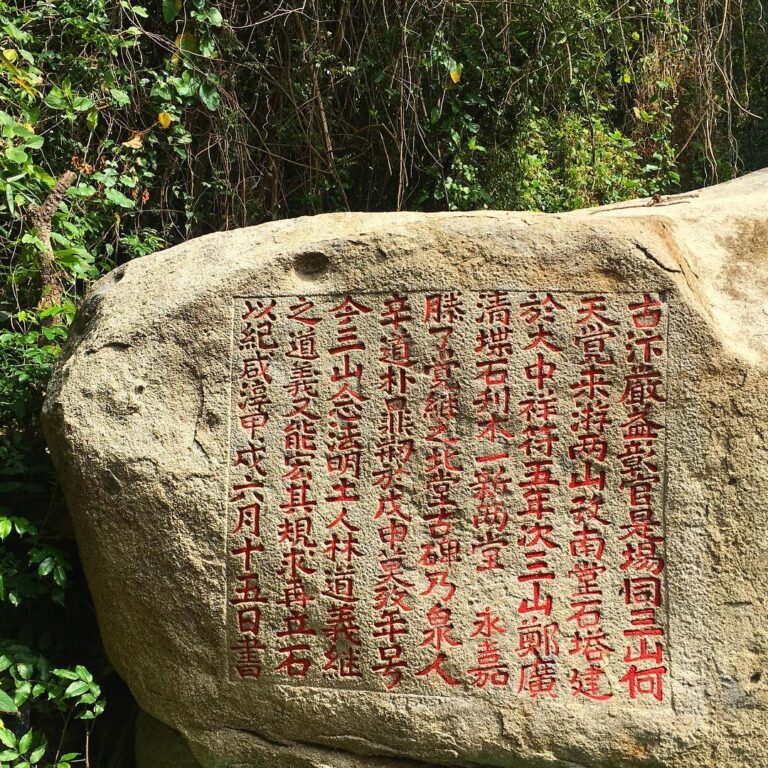 古汴嚴益彰官是場同三山何
天覺来游两山攷南堂石塔建
於大中祥符五年次三山鄭廣
清堞石刊木一新两堂　永嘉
滕了覺継之北堂古碑乃泉人
辛道朴鼎刱於戊申莫攷年号
今三山念法明土人林道義継
之道義又能宏其規求再立石
以紀咸淳甲戌六月十五日書